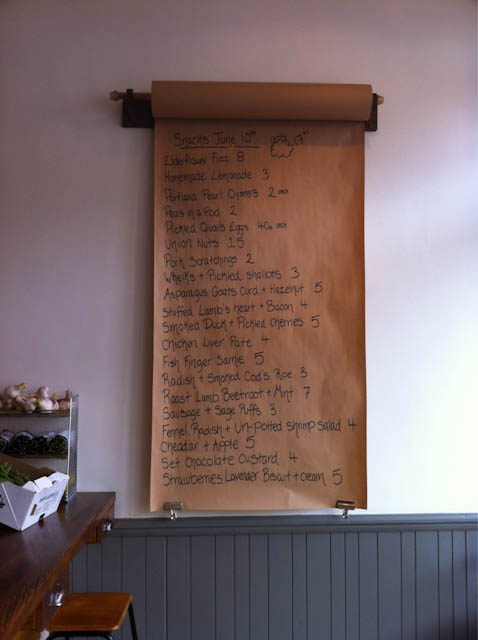 Snacks June 10th 17°
Elderflower Fizz 8
Homemade Lemonade 3
Portland Pearl Oysters 2 each
Peas in a Pod 2
Pickled Quails Eggs 40p each
Union Nuts 1.5
Pork Scratchings 2
Whelks + Pickled shallots 3
Asparagus, Goats Curd + Hazelnut 5
Stuffed Lamb's Heart + Bacon 4
Smoked Duck + Pickled Cherries 5
Chicken Liver Pate 4
Fish Finger Sarnie 5
Radish + Smoked Cod's Roe 3
Roast Lamb, Beetroot + Mint 7
Sausage + Sage Puffs 3
Fennel, Radish + Un-potted shrimp salad 4
Cheddar + Apple 5
Set Chocolate Custard 4
Strawberries, Lavender Biscuit + cream 5